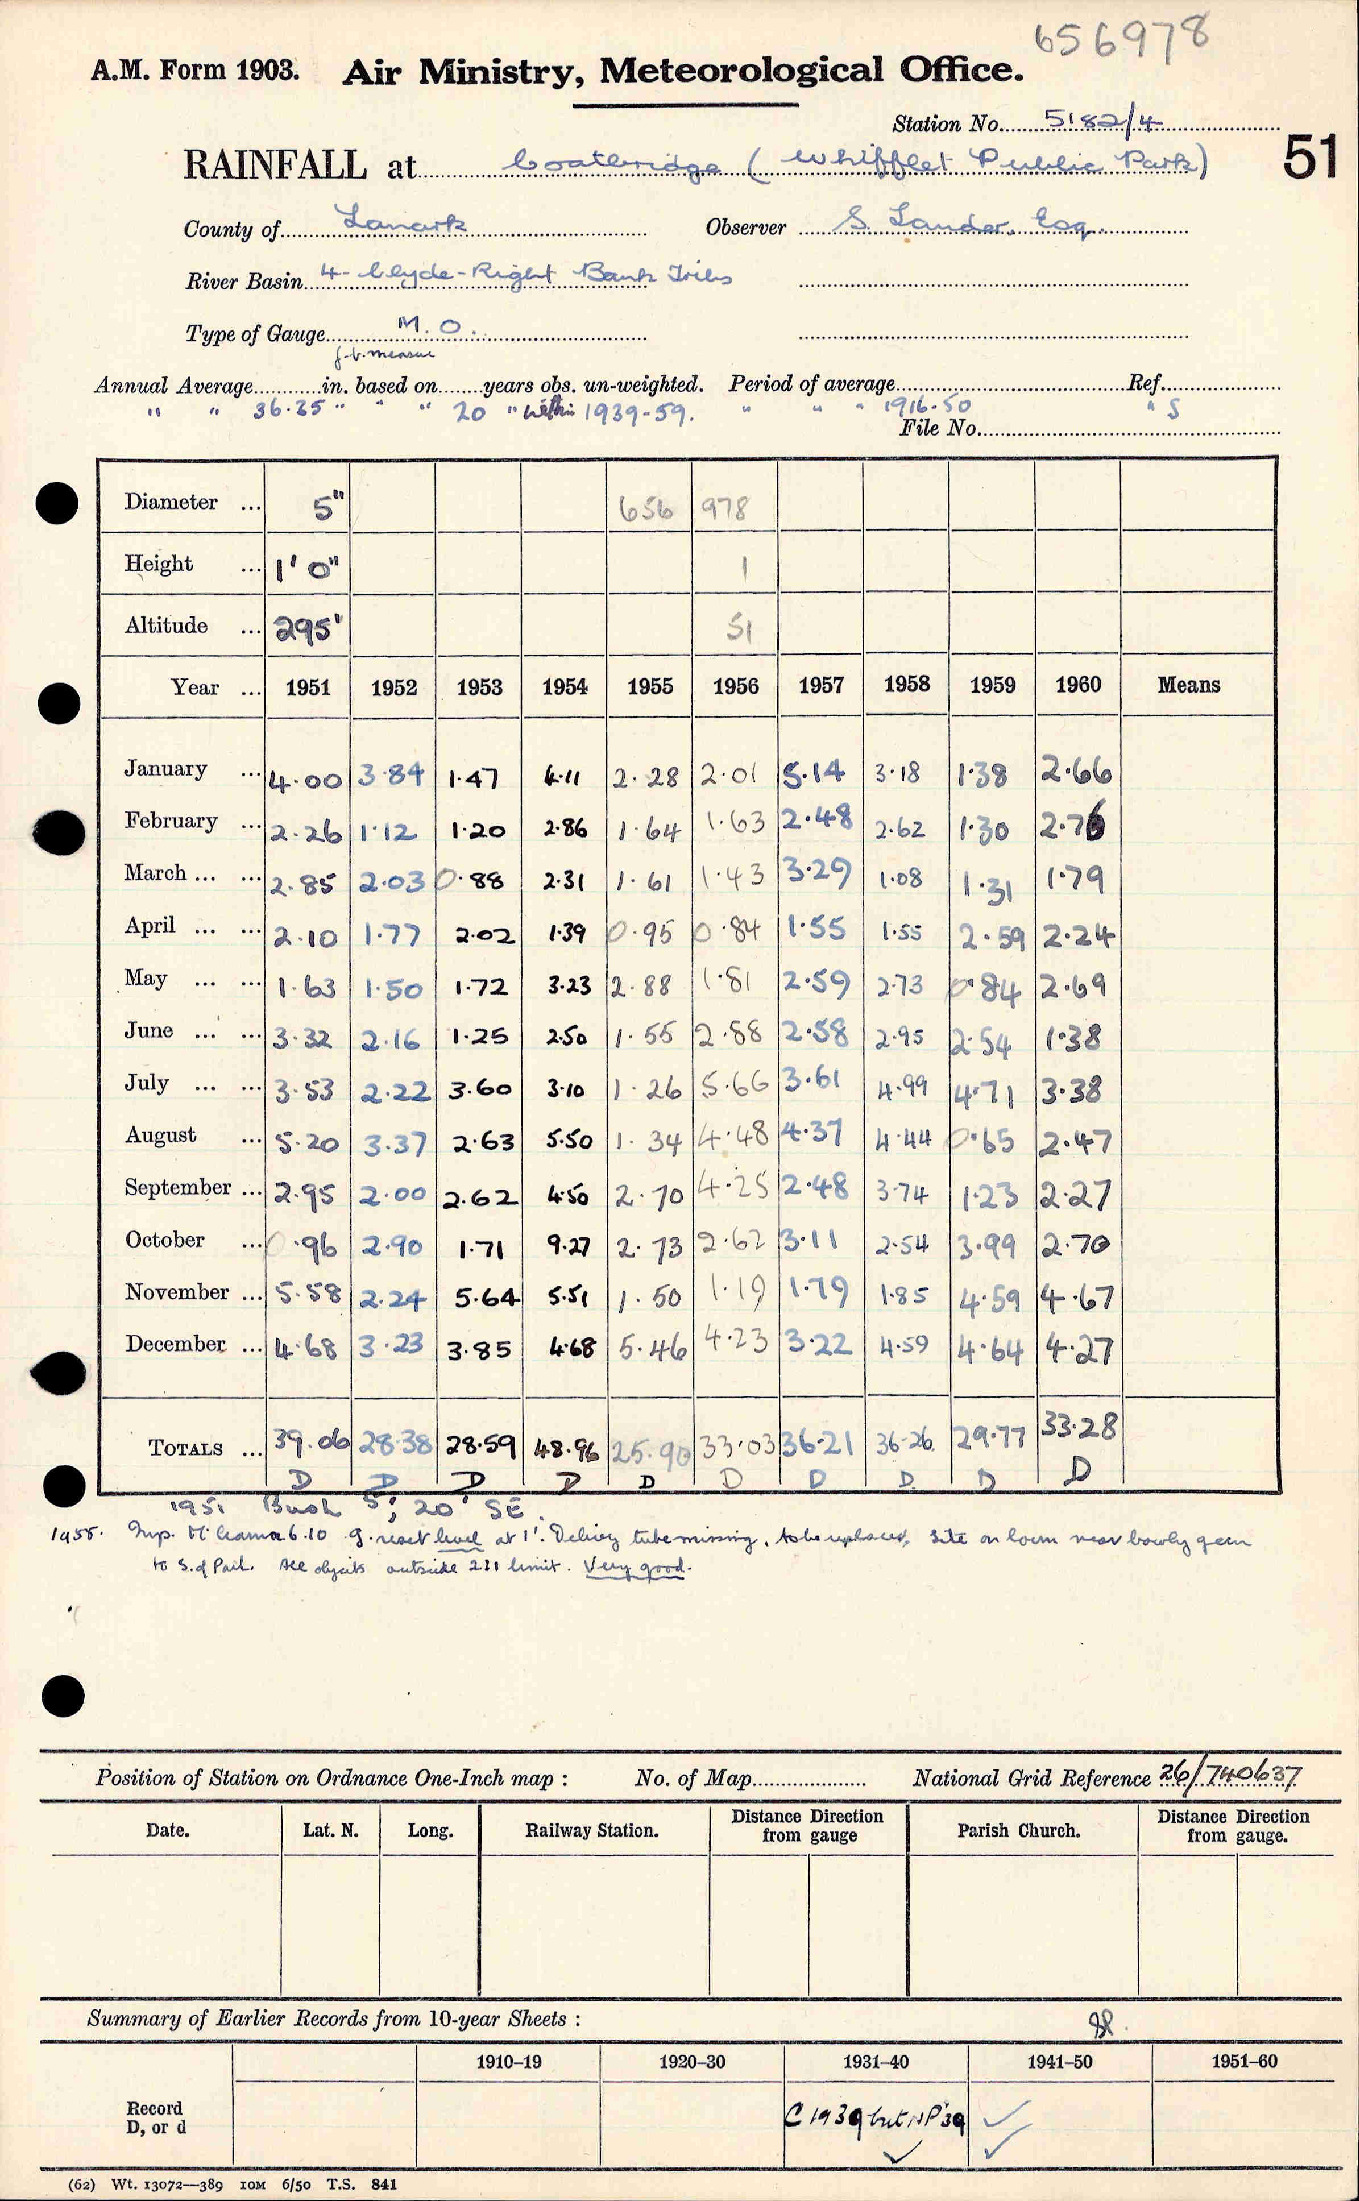 656978
A.M. Form 1903. Air Ministry, Meteorological Office.
Station No. 5182/4
51
RAINFALL at Coatbridge (Whifflet Public Park)
County of Lanark Observer S. Lauder, Esq.
River Basin 4 - Clyde - Right Bank Tribs
Type of Gauge M.O.
measure
Annual Average in. based on years obs. un-weighted. Period of average Ref.
" " 36.25 " " " 20 " within 1939-59. " " " 1916-50 " S
File No.
Diameter ... 5" 656 978
Height ... 1' 0" 1
Altitude ... 295' 51
Year ... 1951 1952 1953 1954 1955 1956 1957 1958 1959 1960 Means
January ... 4.00 3.84 1.47 4.11 2.28 2.01 5.14 3.18 1.38 2.66
February ... 2.26 1.12 1.20 2.86 1.64 1.63 2.48 2.62 1.30 2.76
March ... ... 2.85 2.03 0.88 2.31 1.61 1.43 3.29 1.08 1.31 1.79
April ... ... 2.10 1.77 2.02 1.39 0.95 0.84 1.55 1.55 2.59 2.24
May ... ... 1.63 1.50 1.72 3.23 2.88 1.81 2.59 2.73 0.84 2.69
June ... ... 3.32 2.16 1.25 2.50 1.55 2.88 2.58 2.95 2.54 1.38
July ... ... 3.53 2.22 3.60 3.10 1.26 5.66 3.61 4.99 4.71 3.38
August ... 5.20 3.37 2.63 5.50 1.34 4.48 4.37 4.44 0.65 2.47
September ... 2.95 2.00 2.62 4.50 2.70 4.25 2.48 3.74 1.23 2.27
October ... 0.96 2.90 1.71 9.27 2.73 2.62 3.11 2.54 3.99 2.70
November ... 5.58 2.24 5.64 5.51 1.50 1.19 1.79 1.85 4.59 4.67
December ... 4.68 3.23 3.85 4.68 5.46 4.23 3.22 4.59 4.64 4.27
TOTALS ... 39.06 28.38 28.59 48.96 25.90 33.03 36.21 36.26 29.77 33.28
D D D D D D D D D D
1951 Bush 5'; 20' SE.
1955. Insp. 6.10 g. reset level at 1'. Delivery tube missing, to be replaced. Site on lawn near bowling green
to S. of Park. All objects outside limit. Very good.
Position of Station on Ordnance One-Inch map : No. of Map National Grid Reference 26/740637
Date. Lat. N. Long. Railway Station. Distance Direction from gauge Parish Church. Distance Direction from gauge.
Summary of Earlier Records from 10-year Sheets :
1910–19 1920–30 1931–40 1941–50 1951–60
Record D, or d C 1939 but NP '39
(62) Wt. 13072—389 10M 6/50 T.S. 841